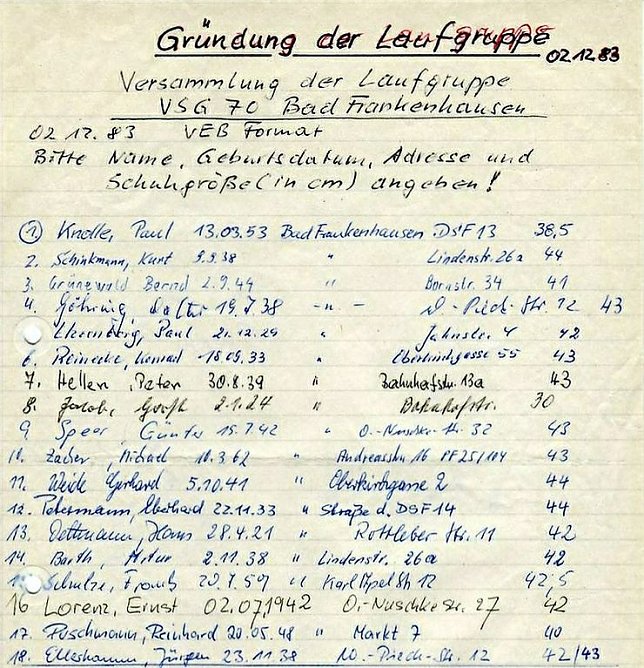 Gründung der Laufgruppe
02.12.83
Versammlung der Laufgruppe
VSG 70 Bad Frankenhausen
02 12. 83 VEB Format
Bitte Name, Geburtsdatum, Adresse und
Schuhgröße (in cm) angeben!
1 Knolle, Paul 13.03.53 Bad Frankenhausen DSF 13 38,5
2. Schinkmann, Kurt 9.9.38 " Lindenstr. 26a 44
3. Grünewald Bernd 2.9.49 " Bornstr. 34 41
4. Göhring, 19.7.38 -"- W.-Pieck-Str. 12 43
Paul 21.12.29 " Jahnstr. 4 42
6. Reinecke, Konrad 18.09.33 " 55 43
7. Heller, Peter 30.8.39 " Bahnhofstr. 13a 43
8. Jacobi, 2.1.24 " Bahnhofstr. 30
9. Speer, Günter 15.7.42 " O.-Nuschke-Str. 32 43
10. Michael 10.3.62 " 16 PF 25/104 43
11. Weide Gerhard 5.10.41 " Oberkirchgasse 2 44
12. Petermann, Eberhard 22.11.33 " Straße d. DSF 14 44
13. Dettmann, Hans 28.4.21 " Rottleber Str. 11 42
14. Barth, Artur 2.11.38 " Lindenstr. 26a 42
Schulze, Frank " 12 42,5
16 Lorenz, Ernst 02.07.1942 O.-Nuschke Str. 27 42
17. Puschmann, Reinhard 20.05.48 " Markt 7 40
18. Jürgen 23.11.38 W.-Pieck-Str. 12 42/43